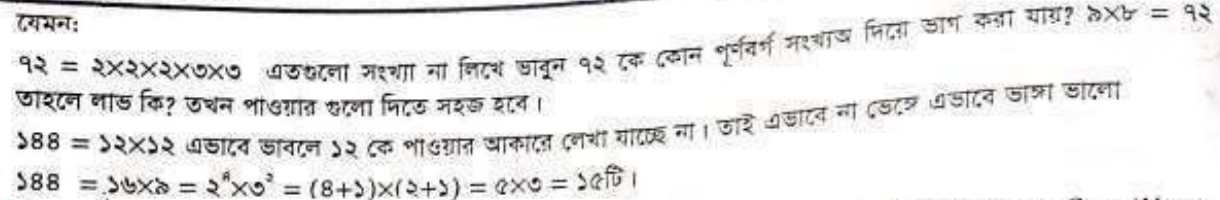 যেমন:
৭২ = ২×২×২×৩×৩ এতগুলো সংখ্যা না লিখে ভাবুন ৭২ কে কোন পূর্ণবর্গ সংখ্যাজ দিয়ে ভাগ করা যায়? ৯×৮ = ৭২
তাহলে লাভ কি? তখন পাওয়ার গুলো দিতে সহজ হবে।
১৪৪ = ১২×১২ এভাবে ভাবলে ১২ কে পাওয়ার আকারে লেখা যাচ্ছে না। তাই এভাবে না ভেঙ্গে এভাবে ভাঙ্গা ভালো
১৪৪ = ১৬×৯ = ২⁴×৩² = (৪+১)×(২+১) = ৫×৩ = ১৫টি।